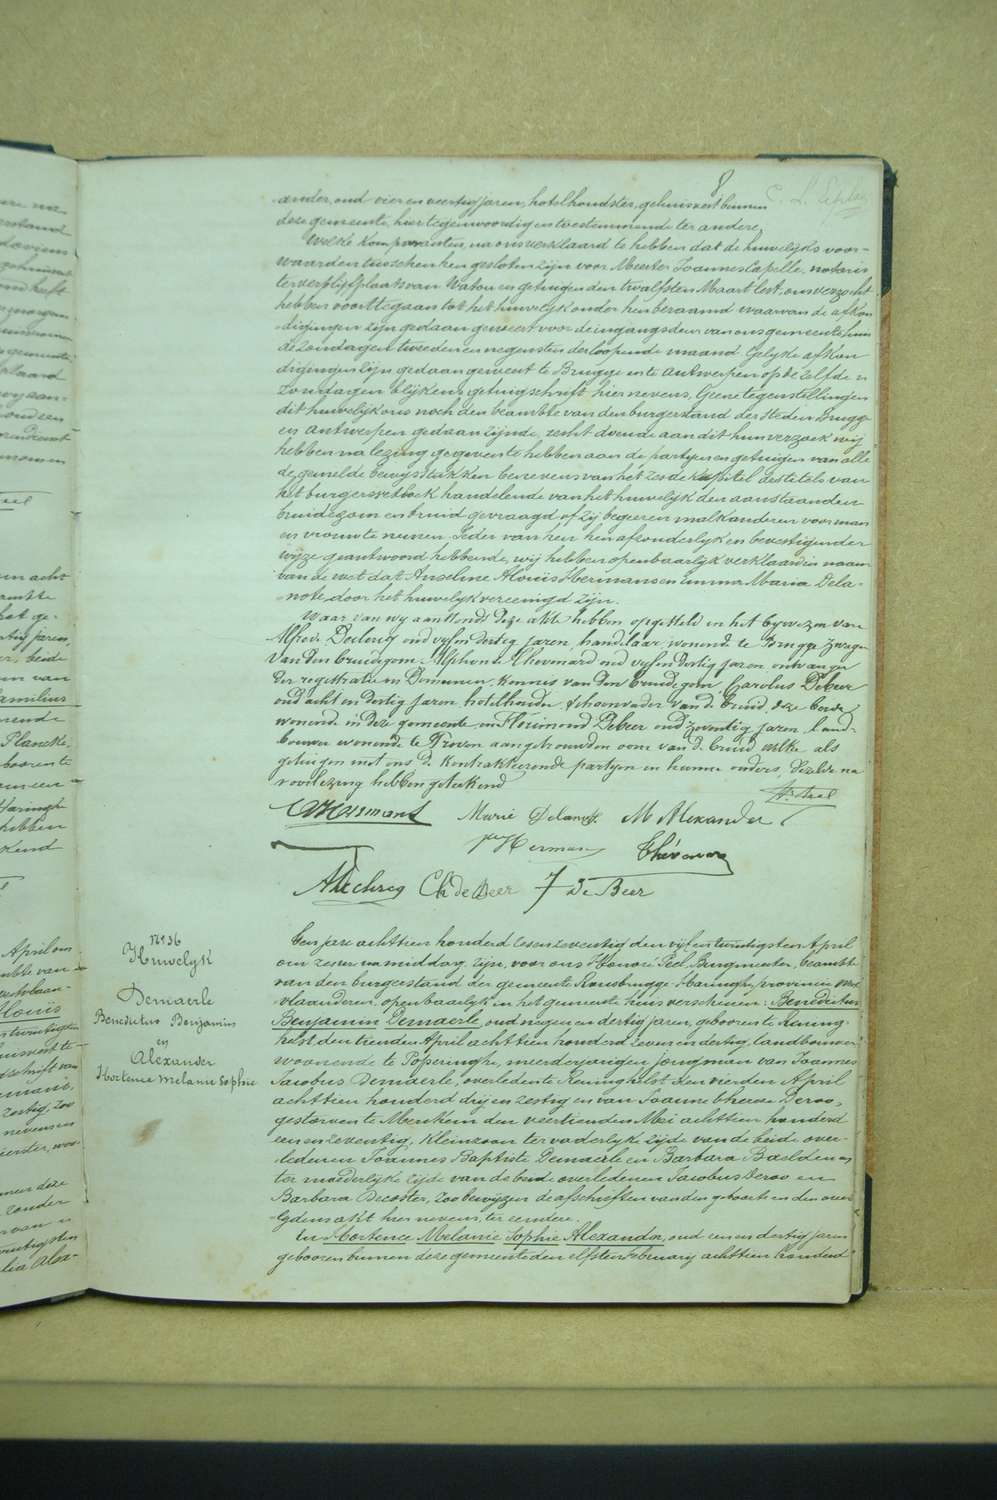 8
ander, oud vier en veertig jaren, hotelhoudster, gehuisvest binnen
deze gemeente, hier tegenwoordig en toestemmende ter andere,
Welke komparanten, na ons verklaard te hebben dat de huwelijks voor-
waarden tusschen hen gesloten zijn voor Meester Joannes Capelle, notaris
ter verblijfplaats van Watou en getuigen den twalfsten Maart lest, ons verzocht
hebben voorttegaan tot het huwelijk onder hen beraamd waarvan de afkon
digingen zijn gedaan geweest voor de ingangsdeur van ons gemeentehuis
de zondagen tweeden en negensten der loopende maand. Gelyke afkon
digingen zijn gedaan geweest te Brugge en te Antwerpen op de zelfde
zondagen blijkens getuigschrift hier nevens. Geene tegenstellingen
dit huwelijk ons noch den beambte van den burgerstand der steden Brugge
en Antwerpen gedaan zijnde, recht doende aan dit hun verzoek wij
hebben na lezing gegeven te hebben aan de partyen en getuigen van alle
de gemelde bewijsstukken benevens van het zesde kapittel des titels van
het burgerwetboek handelende van het huwelijk den aanstaanden
bruidegom en bruid gevraagd of zij begeeren malkanderen voor man
en vrouw te nemen. Ieder van hen hen afzonderlyk en bevestigender
wijze geantwoord hebbende, wij hebben openbaarlyk verklaard in naam
van de wet dat Anselme Alouis Hermans en Emma Maria Dela-
note door het huwelyk vereenigd zijn.
Waar van wy aanstonds deze akte hebben opgesteld in het bywezen van
Alfred Declercq oud vyf en dertig jaren, handelaar, wonende te Brugge zwager
van den bruidegom, Alphonse Thevenard oud vyf en dertig jaren ontvanger
der registratie en Domeinen, kennis van den bruidegom, Carolus Debeer
oud acht en dertig jaren hotelhouder schoonvader van de bruid, deze beide
wonende in deze gemeente en Florimond Debeer oud zeventig jaren land-
bouwer wonende te Proven aangetrouwden oom van de bruid welke als
getuigen met ons de kontrakteerende partyen en hunne ouders, dezelve na
voorlezing hebben geteekend
Marie Delanote M Alexander
Hermans Thévenard
A Declercq Ch de Beer F De Beer
N° 36
Huwelyk
Demaerle
Benedictus Benjamin
en
Alexander
Hortence Melanie Sophie
Ten jare achttien honderd zes en zeventig den vijf en twintigsten April
om zeven namiddag, zijn, voor ons Honoré Peel Burgmeester, beambte
van den burgerstand der gemeente Rousbrugge-Haringhe provincie West
vlaanderen, openbaarlyk in het gemeente huis verschenen: Benedictus
Benjamin Demaerle, oud negen en dertig jaren, geboren te Rening-
helst den tienden April achttien honderd zeven en dertig, landbouwer
woonende te Poperinghe, meerderjarigen jongman van Joannes
Jacobus Demaerle, overleden te Reninghelst den vierden April
achttien honderd drij en zestig en van Joanne therese Deroo,
gestorven te Merckem den veertienden Mei achttien honderd
een en zeventig, kleinzoon ter vaderlyke zijde van de beide over-
ledenen Joannes Baptiste Demaerle en Barbara Baelden en
ter moederlyke zijde van de beide overledenen Jacobus Deroo en
Barbara Decoster, zoo bewijzen de afschriften van den geboort en den over-
lydens akt hier nevens, ter eendere,
En Hortence Melanie Sophie Alexander, oud een en dertig jaren
geboren binnen deze gemeente den elfsten February achttien honderd